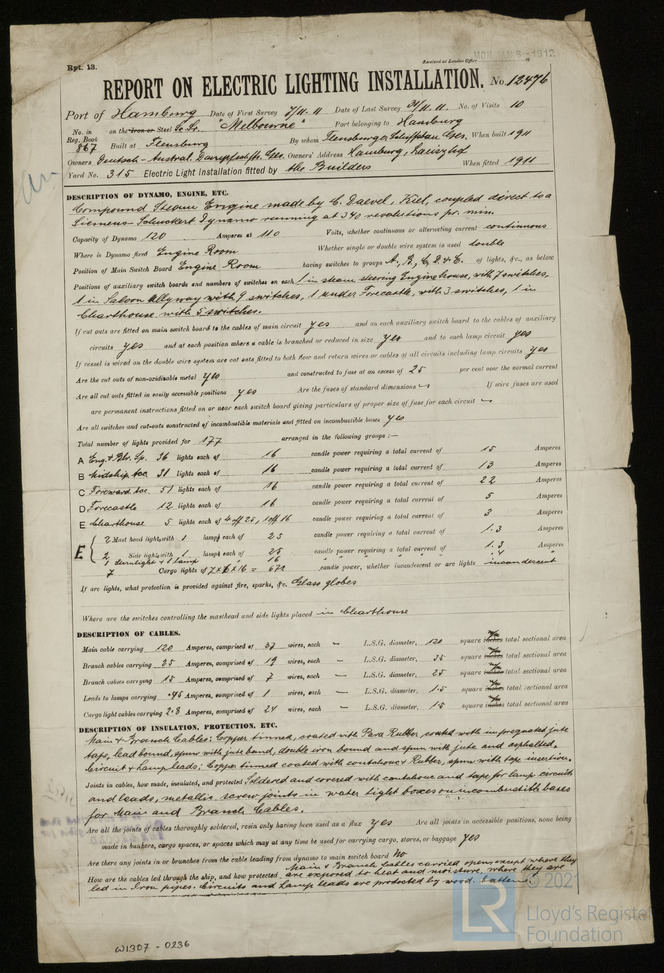 Rpt. 13.
Received at London Office
REPORT ON ELECTRIC LIGHTING INSTALLATION. No. 12476
Port of Hamburg Date of First Survey 7/11.11 Date of Last Survey 24/11.11. No. of Visits 10
No. in Reg. Book 867 on the Iron or Steel "Melbourne" Port belonging to Hamburg
Built at Flensburg By whom Flensburger Schiffsbau Ges. When built 1911
Owners Deutsch-Austral. Dampfschiffs. Ges. Owners' Address Hamburg,
Yard No. 315 Electric Light Installation fitted by the Builders When fitted 1911
DESCRIPTION OF DYNAMO, ENGINE, ETC.
Compound Steam Engine made by C. Daevel, Kiel, coupled direct to a
Siemens Schuckert Dynamo running at 340 revolutions pr. min.
Capacity of Dynamo 120 Amperes at 110 Volts, whether continuous or alternating current continuous
Where is Dynamo fixed Engine Room Whether single or double wire system is used double
Position of Main Switch Board Engine Room having switches to groups A, B, C, D & E. of lights, &c., as below
Positions of auxiliary switch boards and numbers of switches on each 1 in steam steering Enginehouse, with 7 switches,
1 in Saloon allyway with 9 switches, 1 under Forecastle, with 3 switches, 1 in
Charthouse with 5 switches.
If cut outs are fitted on main switch board to the cables of main circuit yes and on each auxiliary switch board to the cables of auxiliary
circuits yes and at each position where a cable is branched or reduced in size yes and to each lamp circuit yes
If vessel is wired on the double wire system are cut outs fitted to both flow and return wires or cables of all circuits including lamp circuits yes
Are the cut outs of non-oxidizable metal yes and constructed to fuse at an excess of 25 per cent over the normal current
Are all cut outs fitted in easily accessible positions yes Are the fuses of standard dimensions If wire fuses are used
are permanent instructions fitted on or near each switch board giving particulars of proper size of fuse for each circuit
Are all switches and cut-outs constructed of incombustible materials and fitted on incombustible bases yes
Total number of lights provided for 177 arranged in the following groups :—
A Eng. & Blr. Sp. 36 lights each of 16 candle power requiring a total current of 15 Amperes
B Midship Acc. 31 lights each of 16 candle power requiring a total current of 13 Amperes
C Forward Acc. 51 lights each of 16 candle power requiring a total current of 22 Amperes
D Forecastle 12 lights each of 16 candle power requiring a total current of 5 Amperes
E Charthouse 5 lights each of 4 off 25, 1 off 16 candle power requiring a total current of 3 Amperes
E 2 Mast head light with 1 lamps each of 25 candle power requiring a total current of 1.3 Amperes
2 Side light with 1 lamps each of 25 candle power requiring a total current of 1.3 Amperes
1 Sternlight 1 lamp 16 " " " " .4 "
7 Cargo lights of 7 x 6 x 16 = 672 candle power, whether incandescent or arc lights incandescent
If arc lights, what protection is provided against fire, sparks, &c. Glass globes
Where are the switches controlling the masthead and side lights placed in Charthouse
DESCRIPTION OF CABLES.
Main cable carrying 120 Amperes, comprised of 37 wires, each — L.S.G. diameter, 120 square inches total sectional area
Branch cables carrying 35 Amperes, comprised of 19 wires, each — L.S.G. diameter, 35 square inches total sectional area
Branch cables carrying 15 Amperes, comprised of 7 wires, each — L.S.G. diameter, 25 square inches total sectional area
Leads to lamps carrying .45 Amperes, comprised of 1 wires, each — L.S.G. diameter, 1.5 square inches total sectional area
Cargo light cables carrying 2.8 Amperes, comprised of 24 wires, each — L.S.G. diameter, 1.5 square inches total sectional area
DESCRIPTION OF INSULATION, PROTECTION, ETC.
Main & Branch Cables; Copper tinned, coated with Para Rubber, coated with impregnated jute
tape, lead bound, spun with jute band, double iron bound and spun with jute and asphalted.
Circuit & Lamp leads; Copper tinned coated with coutchouc & Rubber, spun with tape insertion.
Joints in cables, how made, insulated, and protected Soldered and covered with coutchouc and tape for lamp circuits
and leads, metallic screw joints in water tight boxes on incombustible bases
for Main and Branch Cables.
Are all the joints of cables thoroughly soldered, resin only having been used as a flux yes Are all joints in accessible positions, none being
made in bunkers, cargo spaces, or spaces which may at any time be used for carrying cargo, stores, or baggage yes
Are there any joints in or branches from the cable leading from dynamo to main switch board No
How are the cables led through the ship, and how protected Main & Branch Cables carried open, except where they
are exposed to heat and moisture, where they are
led in Iron pipes. Circuits and Lamp leads are protected by wood battens.
W1307-0236
© 2021
LR
Lloyd's Register
Foundation